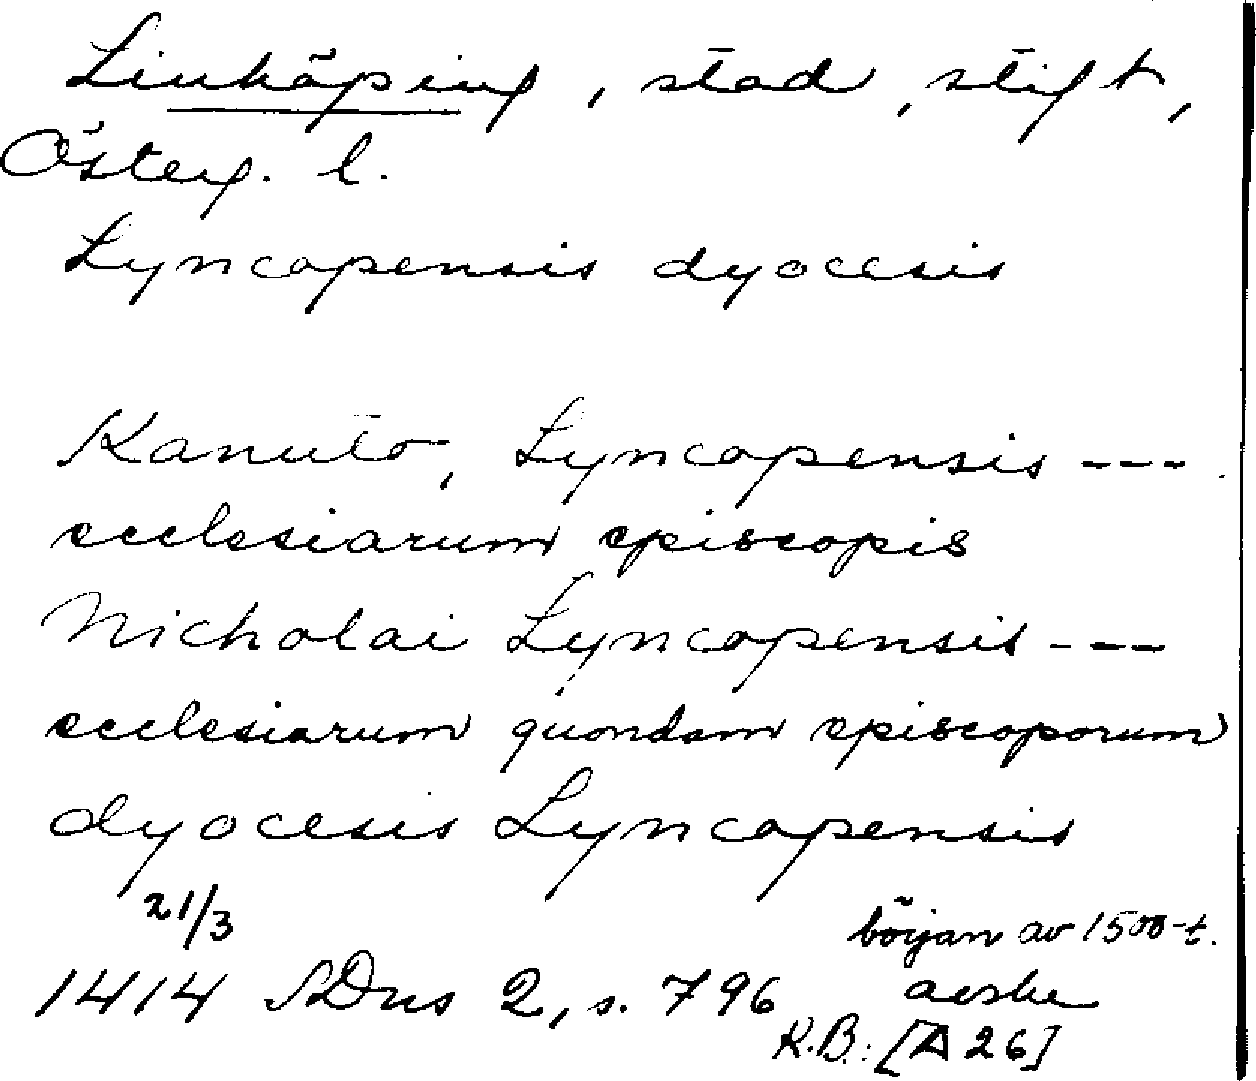 Linköping, stad, stift,
Österg. l.
Lyncopensis dyocesis
Kanuto, Lyncopensis ---
ecclesiarum episcopis
Nicholai Lyncopensis ---
ecclesiarum quondam episcoporum
dyocesis Lyncopensis
21/3
1414 SDns 2, s. 796
början av 1500-t.
avskr
K.B.: [A 26]